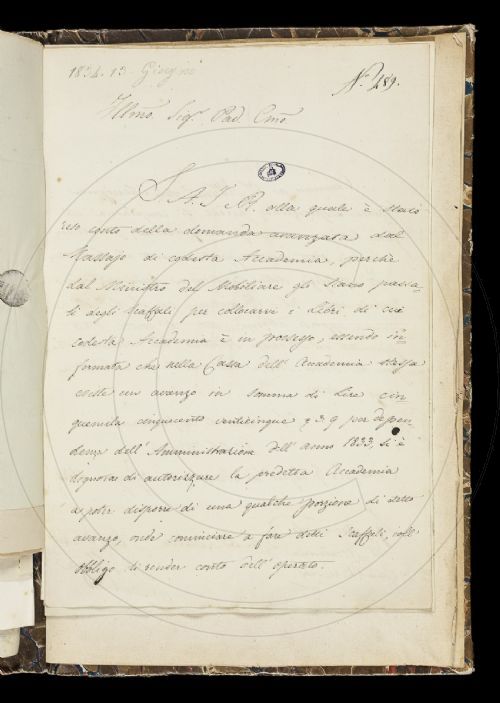 1834. 13. Giugno
N.° 489.
Illmo. Sigr. Pad. Cmo.
S. A. I. R. alla quale è stato
reso conto della domanda avanzata dal
Massajo di codesta Accademia, perchè
dal Ministro del Mobiliare gli siano passa-
ti degli scaffali per collocarvi i Libri di cui
codesta Accademia è in possesso, essendo in-
formata che nella Cassa dell' Accademia stessa
esiste un avanzo in somma di Lire cin
quemila cinquecento venticinque 3. 9 per dipen-
denza dell' Amministrazione dell' anno 1833, si è
degnata di autorizzare la predetta Accademia
a poter disporre di una qualche porzione di detto
avanzo, onde cominciare a fare detti Scaffali, coll'
obbligo di render conto dell' operato.